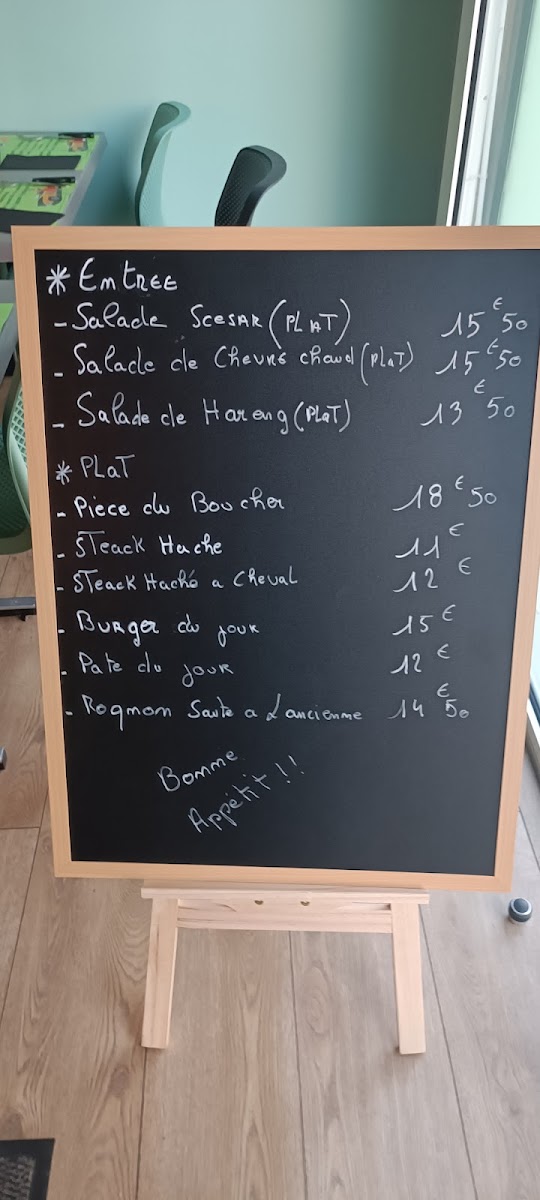 * Entree
- Salade Scesar (PLAT) 15€50
- Salade de Chevre chaud (PlaT) 15€50
- Salade de Hareng (PlaT) 13€50
* PLaT
- Piece du Boucher 18€50
- STeack Hache 11€
- STeack Haché a Cheval 12€
- Burger du jour 15€
- Pate du jour 12€
- Rognon Saute a L'ancienne 14€50
Bonne
Appétit!!